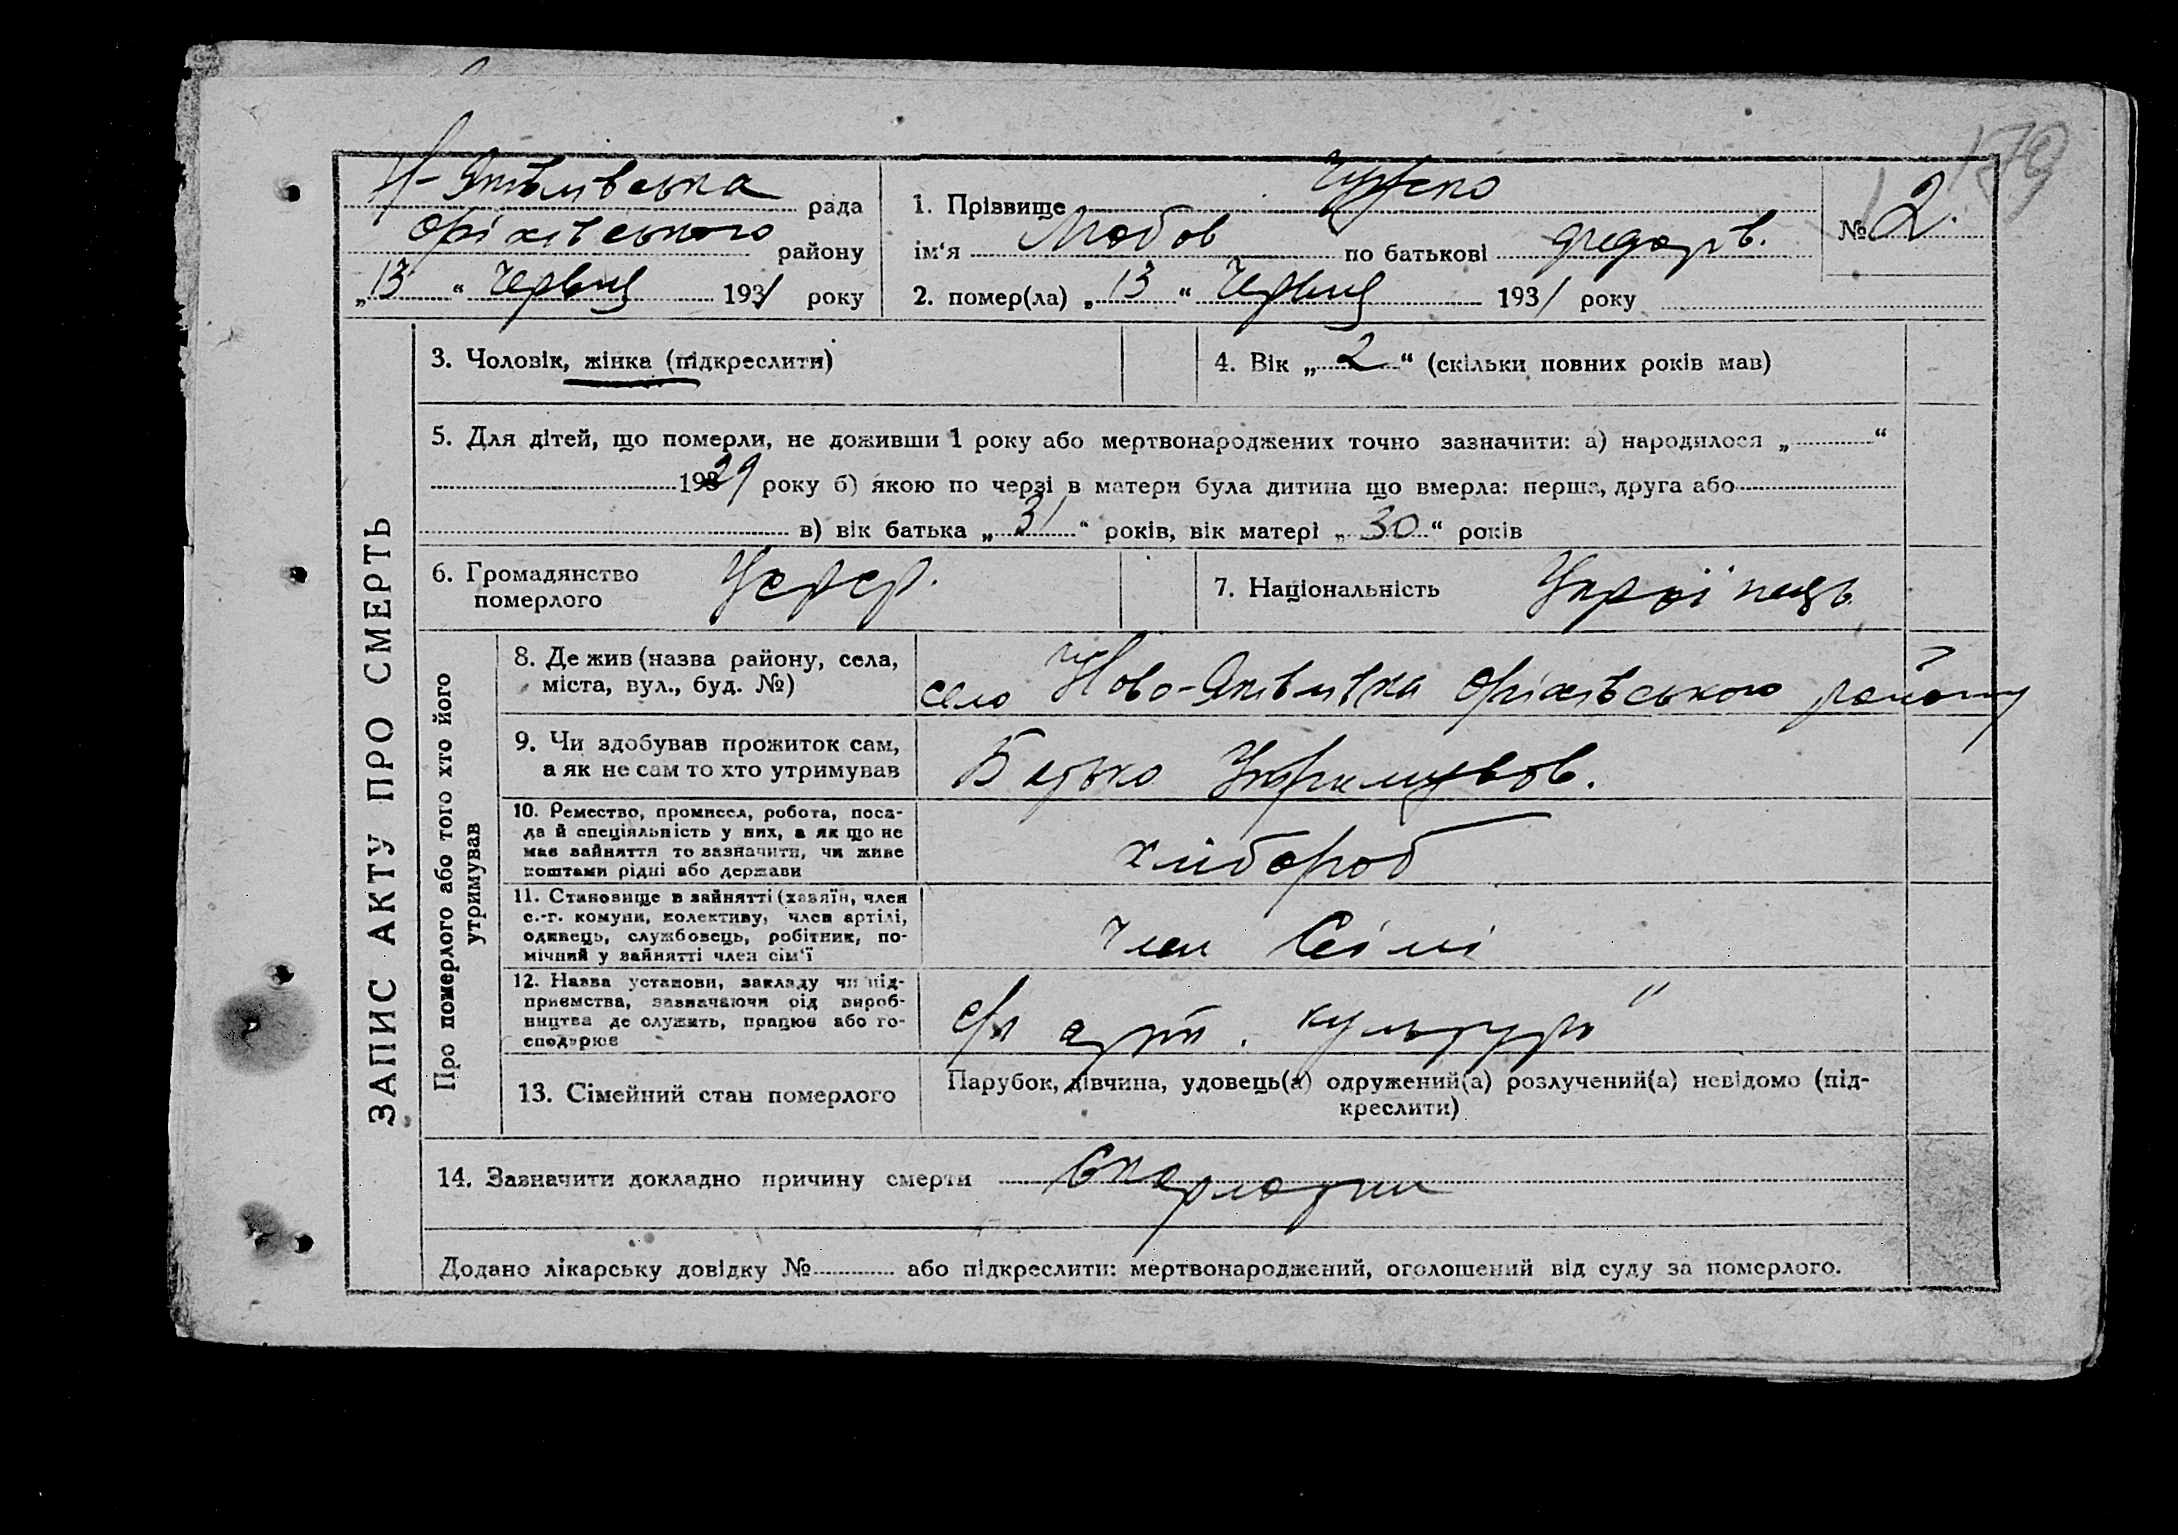 179
Н-Яківлівська рада
Оріхівського району
„13“ Червня 1931 року
1. Прізвище
ім'я Любов по батькові Федорів.
№ 2.
2. помер(ла) „13“ Червня 1931 року
ЗАПИС АКТУ ПРО СМЕРТЬ
3. Чоловік, жінка (підкреслити)
4. Вік „2“ (скільки повних років мав)
5. Для дітей, що померли, не доживши 1 року або мертвонароджених точно зазначити: а) народилося „ “
1929 року б) якою по черзі в матери була дитина що вмерла: перша, друга або
в) вік батька „31“ років, вік матері „30“ років
6. Громадянство
померлого
Усрср.
7. Національність Українець
Про померлого або того хто його
утримував
8. Де жив (назва району, села,
міста, вул., буд. №)
село Ново-Яківлівка Оріхівського району
9. Чи здобував прожиток сам,
а як не сам то хто утримував
Батько
10. Ремество, промисел, робота, поса-
да й спеціяльність у них, а як що не
має зайняття то зазначити, чи живе
коштами рідні або держави
хлібороб
11. Становище в зайнятті (хазяїн, член
с.-г. комуни, колективу, член артілі,
одинець, службовець, робітник, по-
мічний у зайнятті член сім'ї
член Сімі
12. Назва установи, закладу чи під-
приємства, зазначаючи рід вироб-
ництва де служить, працює або го-
сподарює
с/г арт. культура"
13. Сімейний стан померлого
Парубок, дівчина, удовець(а) одружений(а) розлучений(а) невідомо (під-
креслити)
14. Зазначити докладно причину смерти Скарлатин
Додано лікарську довідку № або підкреслити: мертвонароджений, оголошений від суду за померлого.